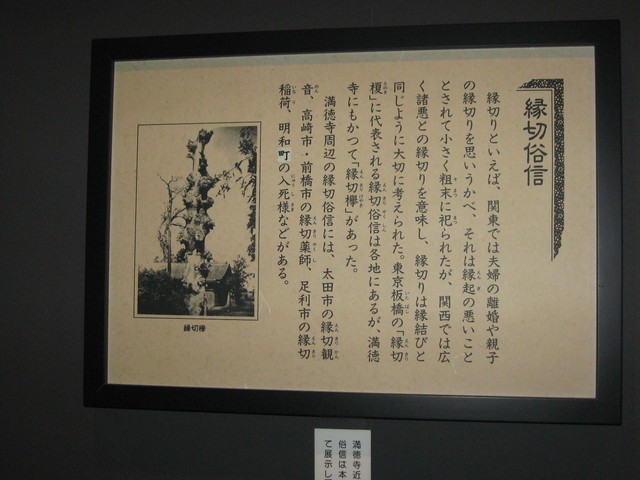 縁切俗信
縁切りといえば、関東では夫婦の離婚や親子
の縁切りを思いうかべ、それは縁起の悪いこと
とされて小さく粗末に祀られたが、関西では広
く諸悪との縁切りを意味し、縁切りは縁結びと
同じように大切に考えられた。東京板橋の「縁切
榎」に代表される縁切俗信は各地にあるが、満徳
寺にもかつて「縁切欅」があった。
満徳寺周辺の縁切俗信には、太田市の縁切観
音、高崎市・前橋市の縁切薬師、足利市の縁切
稲荷、明和町の入死様などがある。
縁切欅
満徳寺近
俗信は本
て展示し